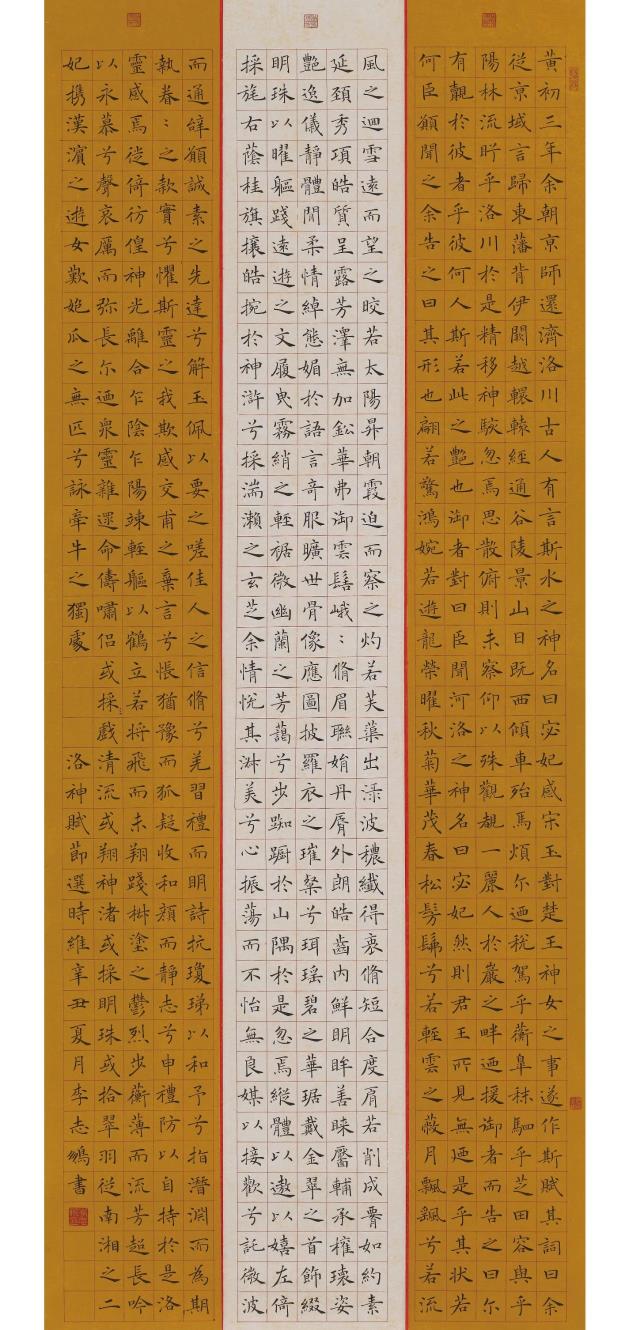 黄初三年余朝京師還濟洛川古人有言斯水之神名曰宓妃感宋玉對楚王神女之事遂作斯賦其詞曰余
從京域言歸東藩背伊闕越轘轅經通谷陵景山日既西傾車殆馬煩尔迺稅駕乎蘅皋秣駟乎芝田容與乎
陽林流眄乎洛川於是精移神駭忽焉思散俯則未察仰以殊觀覩一麗人於巖之畔迺援御者而告之曰尔
有覿於彼者乎彼何人斯若此之艷也御者對曰臣聞河洛之神名曰宓妃然則君王所見無迺是乎其狀若
何臣願聞之余告之曰其形也翩若驚鴻婉若遊龍榮曜秋菊華茂春松髣髴兮若輕雲之蔽月飄飖兮若流
風之迴雪遠而望之皎若太陽昇朝霞迫而察之灼若芙蕖出淥波穠纖得衷脩短合度肩若削成腰如約素
延頸秀項皓質呈露芳澤無加鉛華弗御雲髻峨〻脩眉聯娟丹脣外朗皓齒內鮮明眸善睞靨輔承權瓌姿
艷逸儀靜體閒柔情綽態媚於語言奇服曠世骨像應圖披羅衣之璀粲兮珥瑤碧之華琚戴金翠之首飾綴
明珠以曜軀踐遠遊之文履曳霧綃之輕裾微幽蘭之芳藹兮步踟躕於山隅於是忽焉縱體以遨以嬉左倚
採旄右蔭桂旗攘皓捥於神滸兮採湍瀨之玄芝余情悅其淑美兮心振蕩而不怡無良媒以接歡兮託微波
而通辭願誠素之先達兮解玉佩以要之嗟佳人之信脩兮羌習禮而明詩抗瓊珶以和予兮指潛淵而為期
執眷〻之款實兮懼斯靈之我欺感交甫之棄言兮悵猶豫而狐疑收和顏而靜志兮申禮防以自持於是洛
靈感焉徙倚彷徨神光離合乍陰乍陽竦輕軀以鶴立若將飛而未翔踐椒塗之鬱烈步蘅薄而流芳超長吟
以永慕兮聲哀厲而弥長尔迺衆靈雜遝命儔嘯侶或採戲清流或翔神渚或採明珠或拾翠羽從南湘之二
妃携漢濱之遊女歎匏瓜之無匹兮詠牽牛之獨處
洛神賦節選時維辛丑夏月李志書